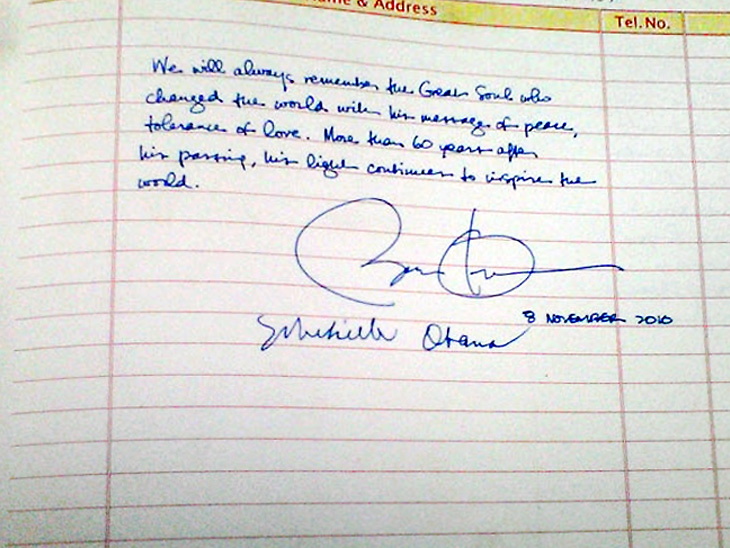 Name & Address
Tel. No.
We will always remember the Great Soul who
changed the world with his message of peace,
tolerance of love. More than 60 years after
his passing, his light continues to inspire the
world.
8 NOVEMBER 2010
Michelle Obama